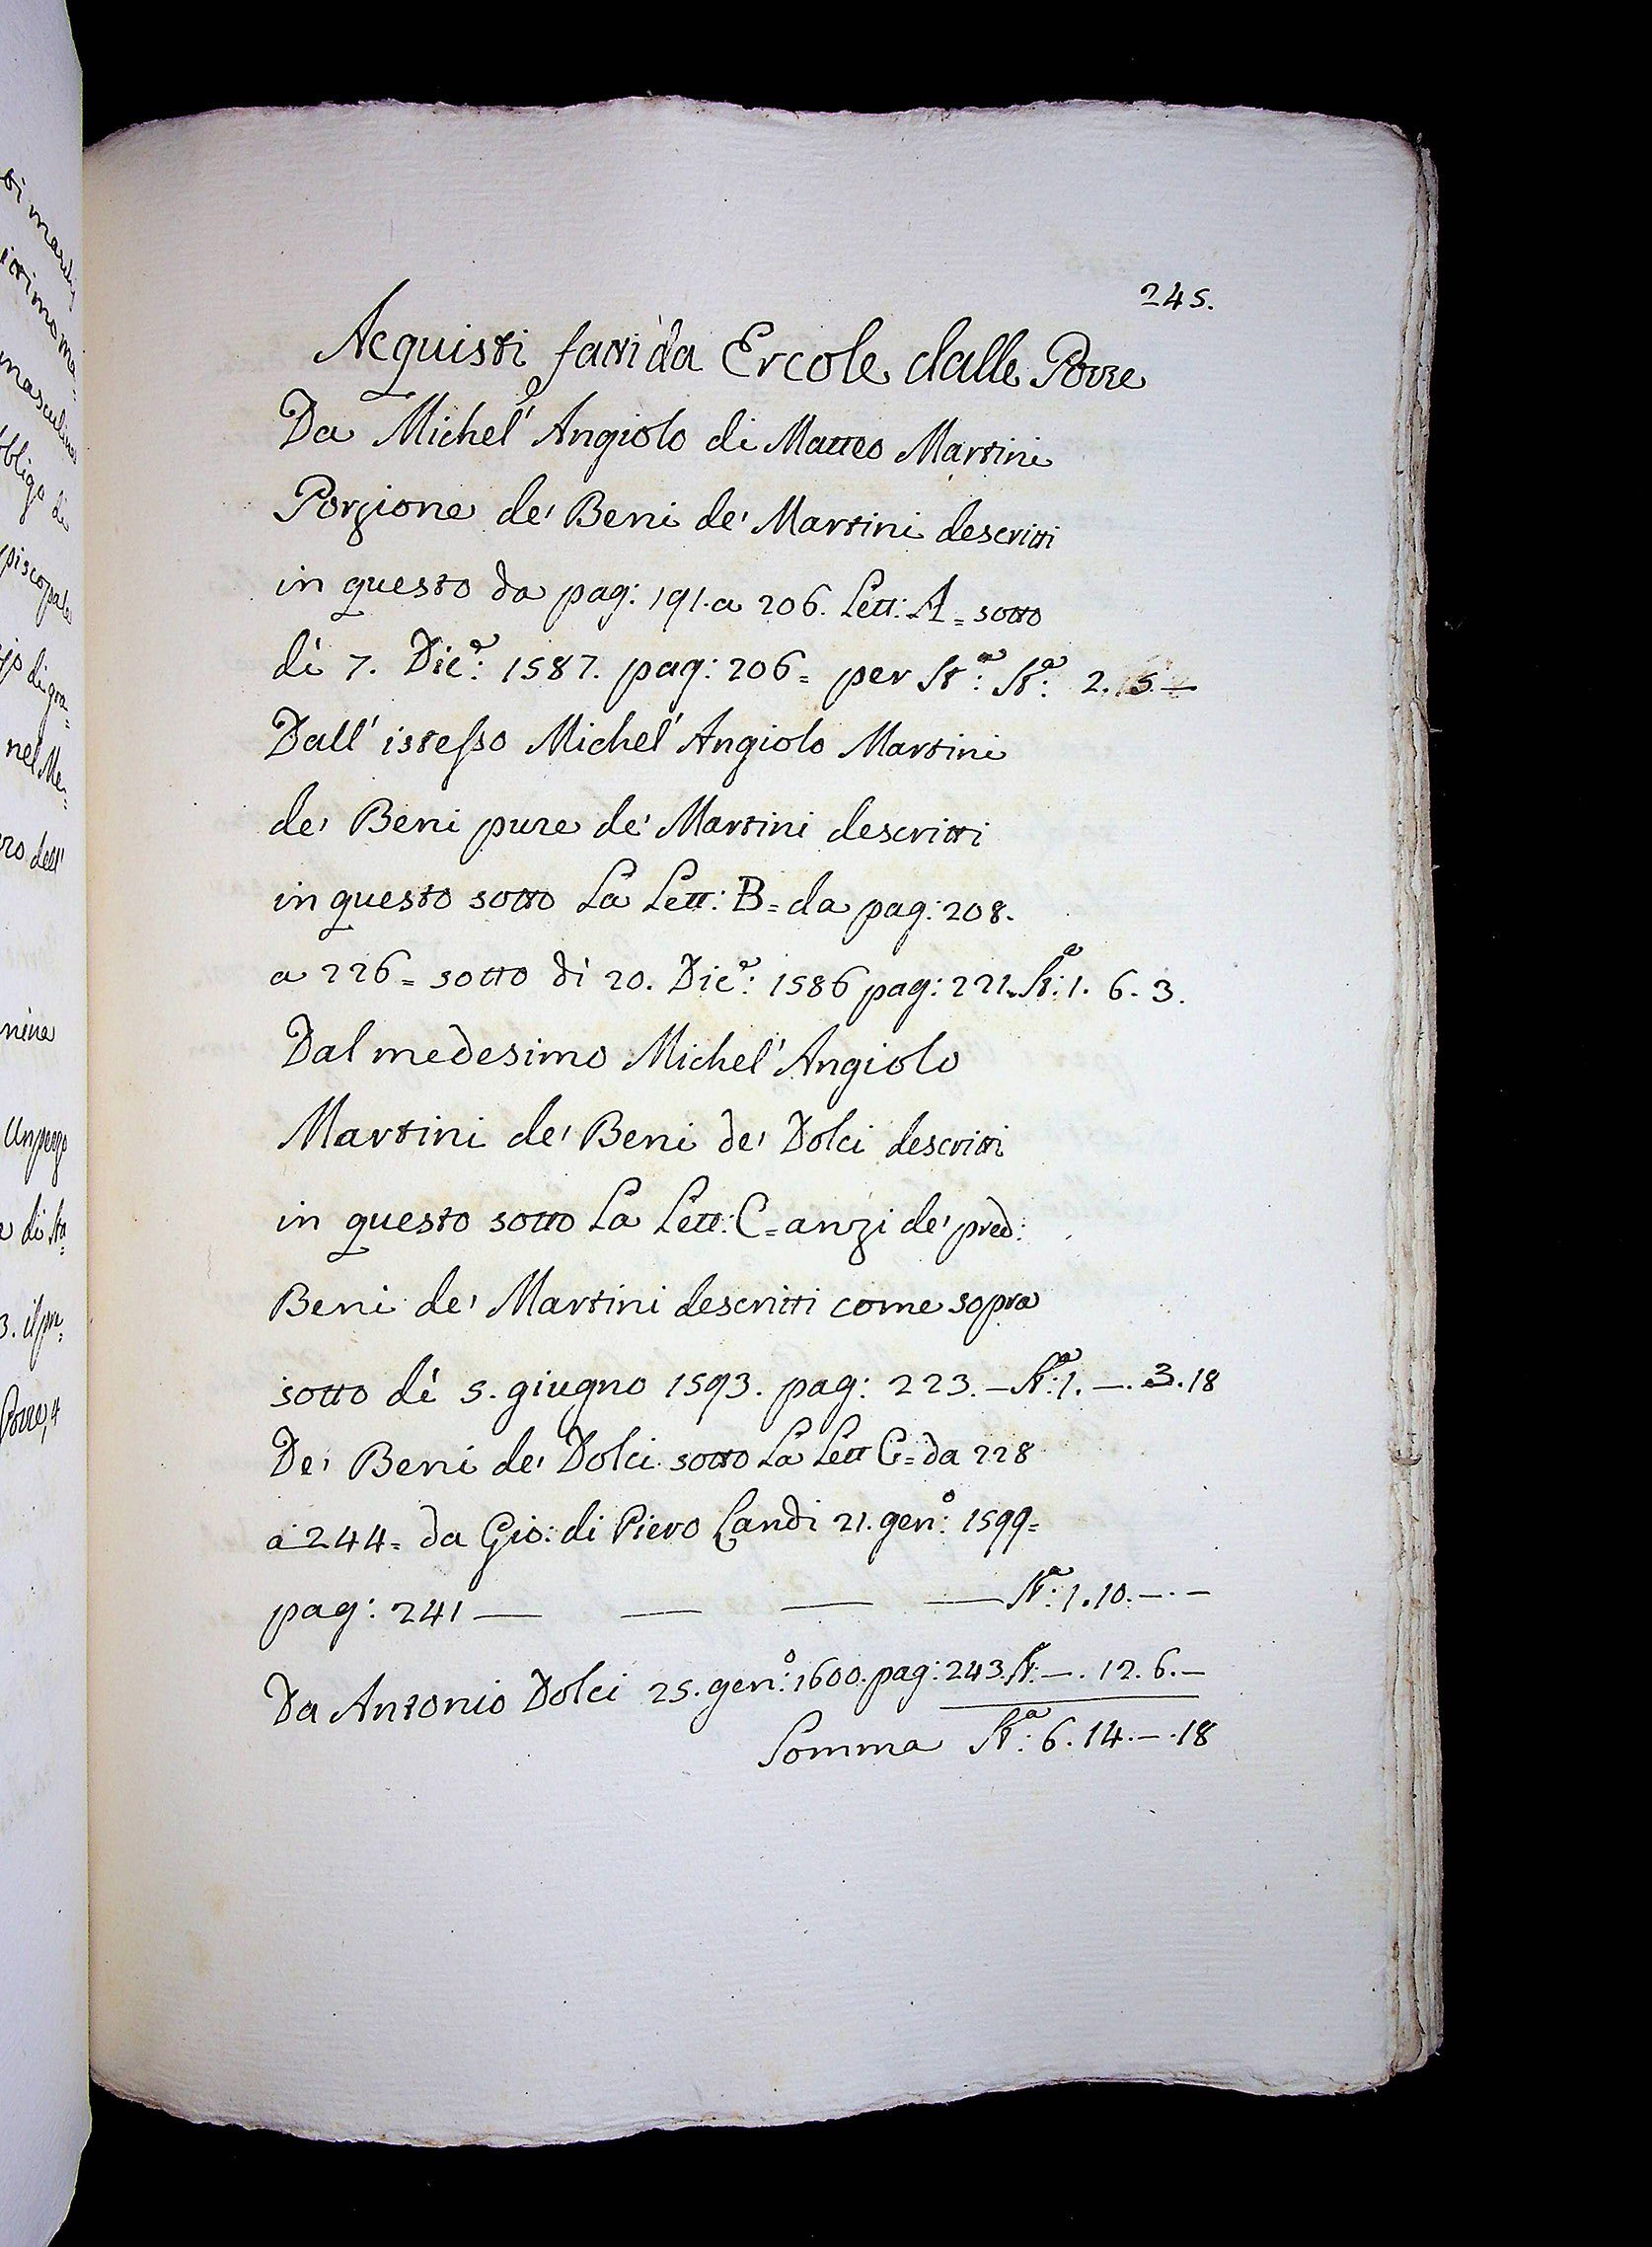 245.
Acquisti fatti da Ercole dalle Povre
Da Michel' Angiolo di Matteo Martini
Porzione de' Beni de' Martini descritti
in questo da pag: 191. a 206. Lett: A = sotto
di 7. Dic.e: 1587. pag: 206 = per St.a: St.a: 2. 5 —
Dall' istesso Michel' Angiolo Martini
de' Beni pure de' Martini descritti
in questo sotto La Lett: B = da pag: 208.
a 226 = sotto di 20. Dic.e: 1586 pag: 221. St.a: 1. 6. 3.
Dal medesimo Michel' Angiolo
Martini de' Beni de' Dolci descritti
in questo sotto La Lett: C = anzi de' pred:
Beni de' Martini descritti come sopra
sotto di 5. giugno 1593. pag: 223. — St.a: 1. —. 3. 18
De' Beni de' Dolci sotto La Lett C = da 228
a 244 = da Gio: di Piero Landi 21. gen.o: 1599 =
pag: 241 — — — — St.a: 1. 10. —. —
Da Antonio Dolci 25. gen.o: 1600. pag: 243. St.a: —. 12. 6. —
Somma St.a: 6. 14. —. 18
piscopale
nel Me=
ro dell'
mina
Un pezzo
di Sta=